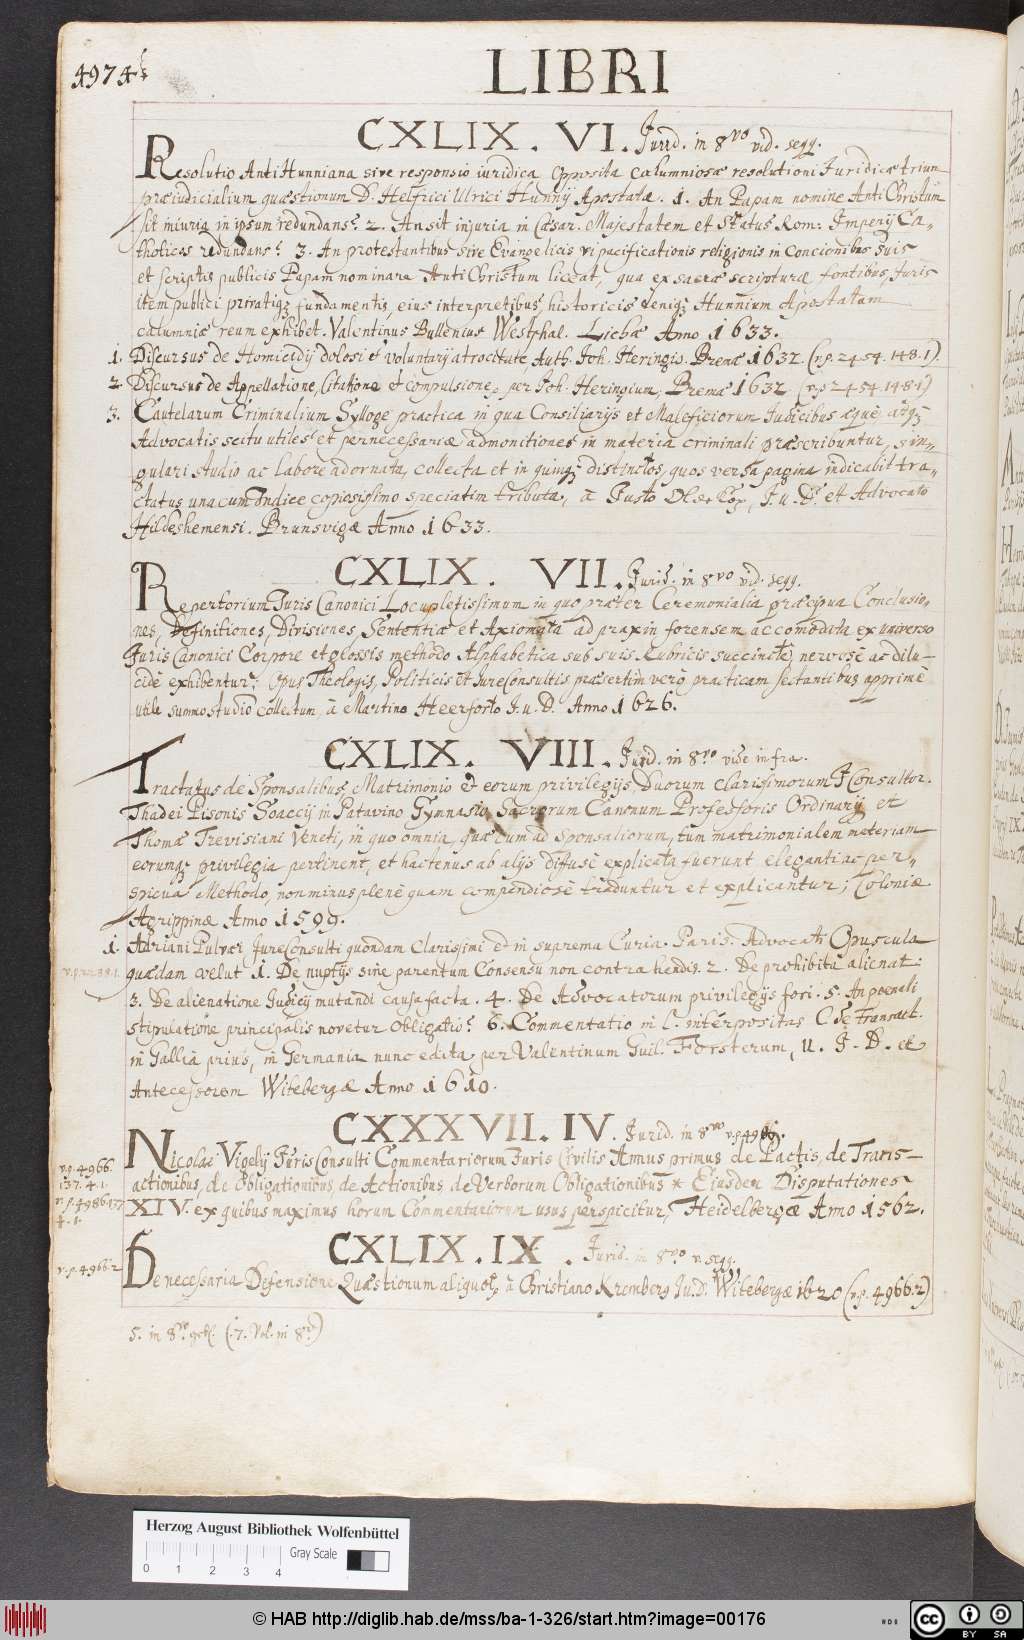 4974
LIBRI
CXLIX. VI. Jurid. in 8vo vid. seqq.
Resolutio AntiHunniana sive responsio iuridica opposita calumniosæ resolutioni Juridicæ trium
præiudicialium quæstionum D. Helfrici Ulrici Hunnij Apostatæ. 1. An Papam nomine AntiChristum
sit iniuria in ipsum redundans? 2. An sit injuria in Cæsar. Majestatem et Status Rom: Imperij Ca=
tholicos redundans? 3. An protestantibus sive Evangelicis vi pacificationis religionis in Concionibus suis
et scriptis publicis Papam nominare AntiChristum liceat, qua ex sacræ scripturæ fontibus, Juris
item publici privatiq; fundamentis, eius interpretibus, historicis deniq; Hunnium Apostatam
calumniæ reum exhibet. Valentinus Bullenius Westphal. Lichæ Anno 1633.
1. Discursus de Homicidij dolosi et voluntarij atrocitate, Auth. Joh. Heringio. Bremæ 1632. (v.p. 2454. 148.1).
2. Discursus de Appellatione, Citatione et compulsione, per Joh. Heringium, Bremæ 1632. (v.p. 2454 148 1)
3. Cautelarum Criminalium Sylloge practica in qua Consiliarijs et Maleficiorum Judicibus æque, atq;
Advocatis scitu utiles et pernecessariæ admonitiones in materia criminali præscribuntur, sin=
gulari studio ac labore adornata, collecta et in quinq; distinctos, quos versa pagina indicabit tra=
ctatus una cum Indice copiosissimo speciatim tributa, à Justo Oldekop, J.u.D. et Advocato
Hildeshemensi. Brunsvigæ Anno 1633.
CXLIX. VII. Jurid. in 8vo vid. seqq.
Repertorium Juris Canonici Locupletissimum in quo præter Ceremonialia præcipua Conclusio=
nes, Definitiones, Divisiones, Sententiæ et Axiomata ad praxin forensem accomodata ex universo
Juris Canonici Corpore et glossis methodo Alphabetica sub suis Rubricis succinctè, nervosè ac dilu-
cidè exhibentur; Opus Theologis, Politicis et JureConsultis præsertim vero practicam sectantibus apprimè
utile summo studio collectum, à Martino Heerforto J.u.D. Anno 1626.
CXLIX. VIII. Jurid. in 8vo vide infra.
Tractatus de Sponsalibus, Matrimonio et eorum privilegijs, Duorum clarissimorum JConsultor.
Thadei Pisonis Soaccij in Patavino Gymnasio, Sacrorum Canonum Professoris Ordinarij, et
Thomæ Trevisiani Veneti, in quo omnia, quæ cum ad sponsaliorum, tum matrimonialem materiam
eorumq; privilegia pertinent, et hactenus ab alijs diffusè explicata fuerunt eleganti ac per=
spicua Methodo, non minus plenè quam compendiosè traduntur et explicantur; Coloniæ
Agrippinæ Anno 1599.
1. Adriani Pulvæi JureConsulti quondam Clarissimi et in suprema Curia Paris. Advocati Opuscula
quædam velut 1. De nuptijs sine parentum Consensu non contrahendis. 2. De prohibita alienat:
3. De alienatione Judicij mutandi causa facta. 4. De Advocatorum privilegijs fori. 5. An poenali
stipulatione principalis novetur obligatio? 6. Commentatio in l. interpositas C. de Transact.
in Gallia prius, in Germania nunc edita per Valentinum Guil. Forsterum, U. J. D. et
Antecessorem Witebergæ Anno 1610.
CXXXVII. IV. Jurid. in 8vo
v.p. 4966.
137. 4. 1.
v. p. 4986. 137
4. 1.
Nicolai Vigelij JurisConsulti Commentariorum Juris Civilis Annus primus de Pactis, de Trans-
actionibus, de Obligationibus, de Actionibus, de Verborum Obligationibus * Eiusdem Disputationes
XIV. ex quibus maximus horum Commentariorum usus perspicitur, Heidelbergæ Anno 1562.
CXLIX. IX. Jurid. in 8vo v. seqq.
v. p. 4966. 2
De necessaria Defensione Quæstionum aliquot, à Christiano Kremberg J.u.D. Witebergæ 1620 (v.p. 4966.2)
5. in 8vo (7. Vol. in 8vo)
Herzog August Bibliothek Wolfenbüttel
Gray Scale
0 1 2 3 4
© HAB http://diglib.hab.de/mss/ba-1-326/start.htm?image=00176
cc BY SA